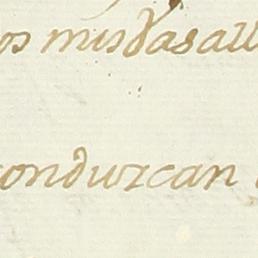 os misdasall
conduzcan